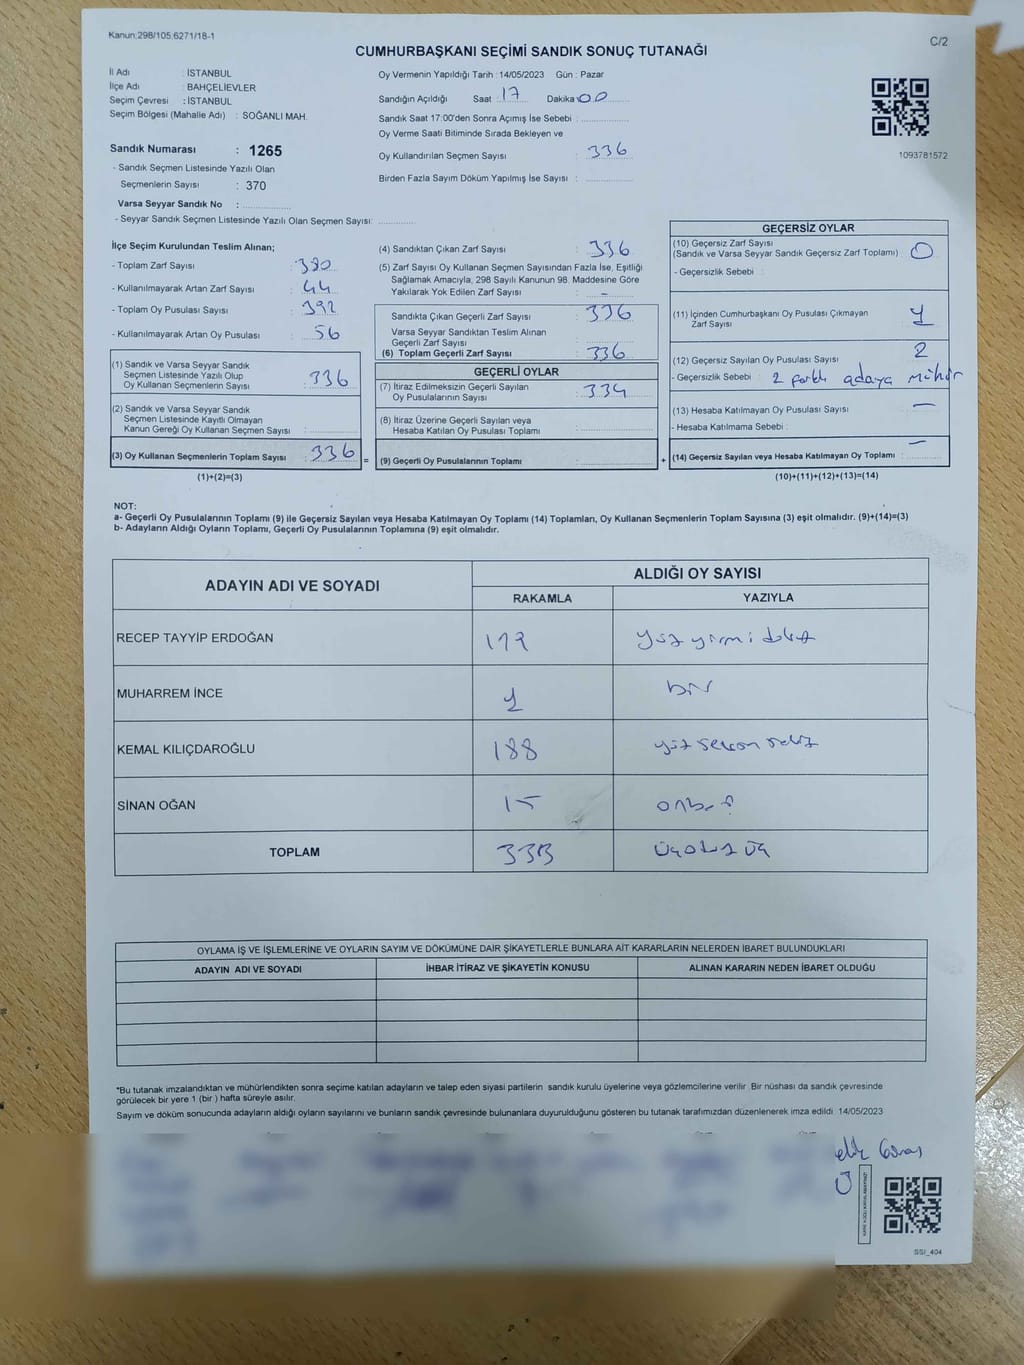 Kanun:298/105.6271/18-1
C/2
CUMHURBAŞKANI SEÇİMİ SANDIK SONUÇ TUTANAĞI
İl Adı : İSTANBUL
İlçe Adı : BAHÇELİEVLER
Seçim Çevresi : İSTANBUL
Seçim Bölgesi (Mahalle Adı) : SOĞANLI MAH.
Sandık Numarası : 1265
- Sandık Seçmen Listesinde Yazılı Olan
Seçmenlerin Sayısı : 370
Varsa Seyyar Sandık No :
- Seyyar Sandık Seçmen Listesinde Yazılı Olan Seçmen Sayısı:
Oy Vermenin Yapıldığı Tarih : 14/05/2023 Gün : Pazar
Sandığın Açıldığı Saat 17 Dakika 00
Sandık Saat 17:00'den Sonra Açımış İse Sebebi :
Oy Verme Saati Bitiminde Sırada Bekleyen ve
Oy Kullandırılan Seçmen Sayısı : 336
Birden Fazla Sayım Döküm Yapılmış İse Sayısı :
1093781572
İlçe Seçim Kurulundan Teslim Alınan;
- Toplam Zarf Sayısı : 380
- Kullanılmayarak Artan Zarf Sayısı : 44
- Toplam Oy Pusulası Sayısı : 392
- Kullanılmayarak Artan Oy Pusulası : 56
(1) Sandık ve Varsa Seyyar Sandık
Seçmen Listesinde Yazılı Olup
Oy Kullanan Seçmenlerin Sayısı : 336
(2) Sandık ve Varsa Seyyar Sandık
Seçmen Listesinde Kayıtlı Olmayan
Kanun Gereği Oy Kullanan Seçmen Sayısı :
(3) Oy Kullanan Seçmenlerin Toplam Sayısı : 336 =
(1)+(2)=(3)
(4) Sandıktan Çıkan Zarf Sayısı : 336
(5) Zarf Sayısı Oy Kullanan Seçmen Sayısından Fazla İse, Eşitliği
Sağlamak Amacıyla, 298 Sayılı Kanunun 98. Maddesine Göre
Yakılarak Yok Edilen Zarf Sayısı : -
Sandıkta Çıkan Geçerli Zarf Sayısı : 336
Varsa Seyyar Sandıktan Teslim Alınan
Geçerli Zarf Sayısı :
(6) Toplam Geçerli Zarf Sayısı : 336
GEÇERLİ OYLAR
(7) İtiraz Edilmeksizin Geçerli Sayılan
Oy Pusulalarının Sayısı : 334
(8) İtiraz Üzerine Geçerli Sayılan veya
Hesaba Katılan Oy Pusulası Toplamı :
(9) Geçerli Oy Pusulalarının Toplamı : +
GEÇERSİZ OYLAR
(10) Geçersiz Zarf Sayısı
(Sandık ve Varsa Seyyar Sandık Geçersiz Zarf Toplamı) : 0
- Geçersizlik Sebebi :
(11) İçinden Cumhurbaşkanı Oy Pusulası Çıkmayan
Zarf Sayısı : 1
(12) Geçersiz Sayılan Oy Pusulası Sayısı : 2
- Geçersizlik Sebebi : 2 farklı adaya mühür
(13) Hesaba Katılmayan Oy Pusulası Sayısı : -
- Hesaba Katılmama Sebebi :
(14) Geçersiz Sayılan veya Hesaba Katılmayan Oy Toplamı : -
(10)+(11)+(12)+(13)=(14)
NOT:
a- Geçerli Oy Pusulalarının Toplamı (9) ile Geçersiz Sayılan veya Hesaba Katılmayan Oy Toplamı (14) Toplamları, Oy Kullanan Seçmenlerin Toplam Sayısına (3) eşit olmalıdır. (9)+(14)=(3)
b- Adayların Aldığı Oyların Toplamı, Geçerli Oy Pusulalarının Toplamına (9) eşit olmalıdır.
ADAYIN ADI VE SOYADI
ALDIĞI OY SAYISI
RAKAMLA YAZIYLA
RECEP TAYYİP ERDOĞAN 129 yüz yirmi dokuz
MUHARREM İNCE 1 bir
KEMAL KILIÇDAROĞLU 188 yüz seksen sekiz
SİNAN OĞAN 15 onbeş
TOPLAM 333 üçotuz üç
OYLAMA İŞ VE İŞLEMLERİNE VE OYLARIN SAYIM VE DÖKÜMÜNE DAİR ŞİKAYETLERLE BUNLARA AİT KARARLARIN NELERDEN İBARET BULUNDUKLARI
ADAYIN ADI VE SOYADI İHBAR İTİRAZ VE ŞİKAYETİN KONUSU ALINAN KARARIN NEDEN İBARET OLDUĞU
*Bu tutanak imzalandıktan ve mühürlendikten sonra seçime katılan adayların ve talep eden siyasi partilerin sandık kurulu üyelerine veya gözlemcilerine verilir. Bir nüshası da sandık çevresinde
görülecek bir yere 1 (bir ) hafta süreyle asılır.
Sayım ve döküm sonucunda adayların aldığı oyların sayılarını ve bunların sandık çevresinde bulunanlara duyurulduğunu gösteren bu tutanak tarafımızdan düzenlenerek imza edildi. 14/05/2023
SSI_404